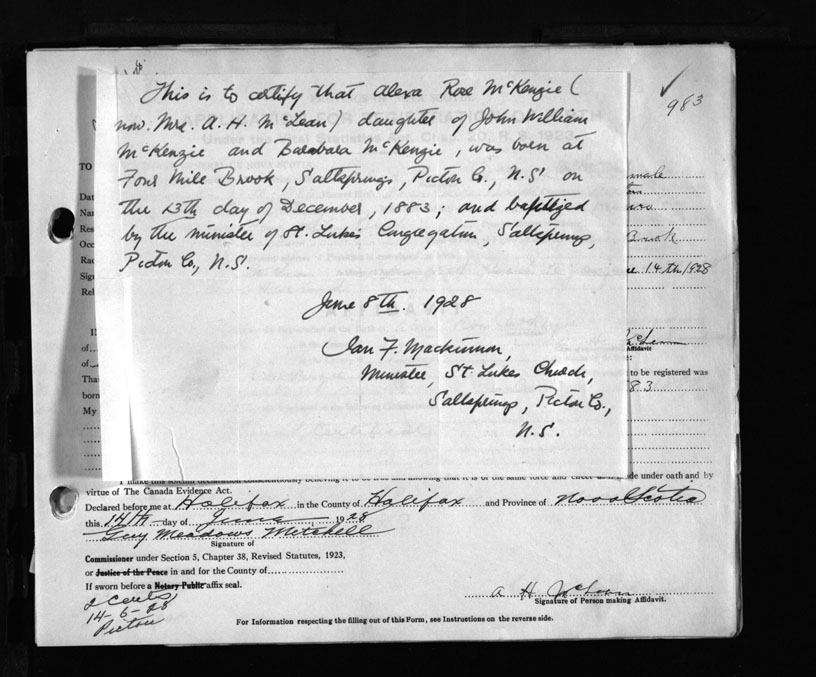 This is to certify that Alexa Rose McKenzie (
now. Mrs. A. H. McLean) daughter of John William
McKenzie and Barabara McKenzie, was born at
Four Mile Brook, Saltsprings, Pictou Co., N.S. on
the 13th day of December, 1883; and baptized
by the minister of St. Lukes Congregation, Saltsprings,
Pictou Co., N.S.
June 8th. 1928
Ian F. Mackinnon,
Minister, St Lukes Church,
Saltsprings, Pictou Co.,
N.S.
983
TO
Dat
Nam
Res
Occ
Rac
Sig
Rel
14th/1928
Affidavit
to be registered was
83
of
of
Tha
born
My
I make this solemn declaration conscientiously believing it to be true and knowing that it is of the same force and effect as if made under oath and by
virtue of The Canada Evidence Act.
Declared before me at Halifax in the County of Halifax and Province of Nova Scotia
this 14th day of June 1928
Guy Meadows Mitchell
Signature of
Commissioner under Section 5, Chapter 38, Revised Statutes, 1923,
or Justice of the Peace in and for the County of
If sworn before a Notary Public affix seal.
2 Certs
14-6-28
Pictou
A H McLean
Signature of Person making Affidavit.
For Information respecting the filling out of this Form, see Instructions on the reverse side.